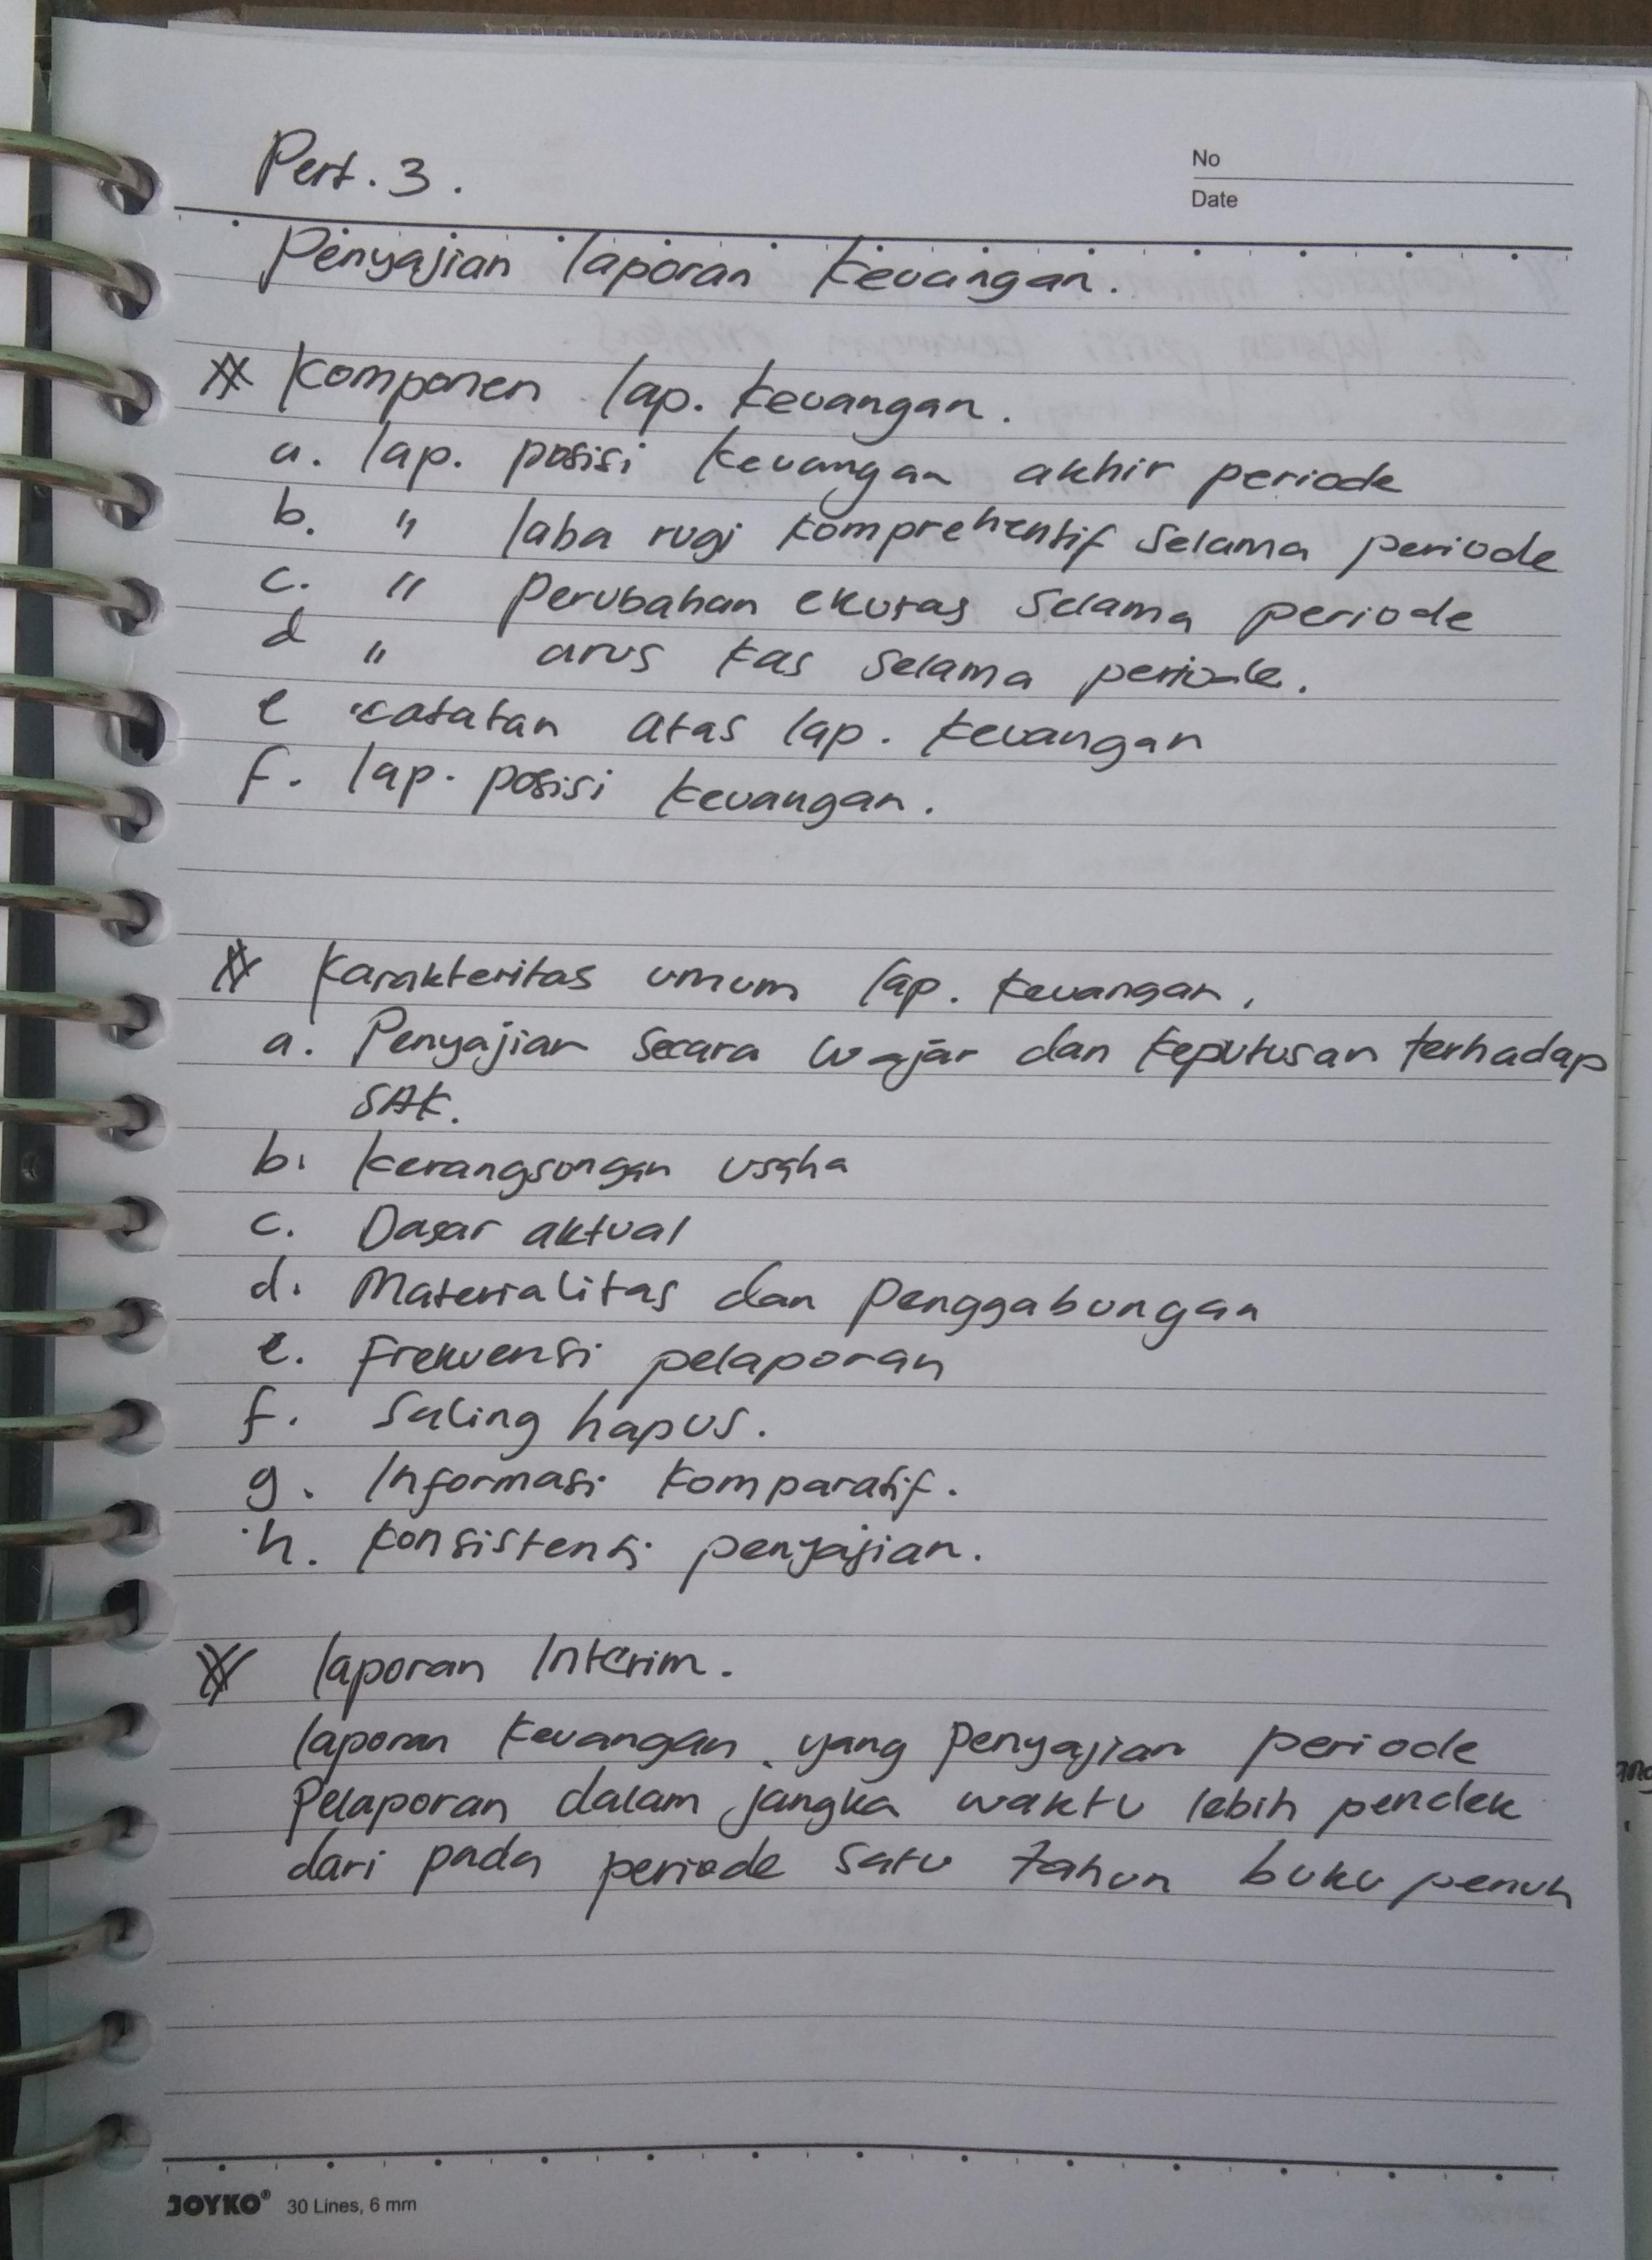 Pert. 3.
No
Date
Penyajian laporan keuangan.
Komponen lap. keuangan.
a. lap. posisi keuangan akhir periode
b. " laba rugi komprehentif selama periode
c. " perubahan ekuitas selama periode
d " arus kas selama periode.
e catatan atas lap. keuangan
f. lap. posisi keuangan.
Karakteritas umum lap. keuangan.
a. Penyajian secara wajar dan keputusan terhadap
SAK.
b. kerangsongan usaha
c. Dasar aktual
d. Materialitas dan Penggabungan
e. frekuensi pelaporan
f. Saling hapus.
g. Informasi komparatif.
h. konsistensi penyajian.
laporan Interim.
laporan keuangan yang penyajian periode
pelaporan dalam jangka waktu lebih pendek
dari pada periode satu tahun buku penuh
JOYKO® 30 Lines, 6 mm